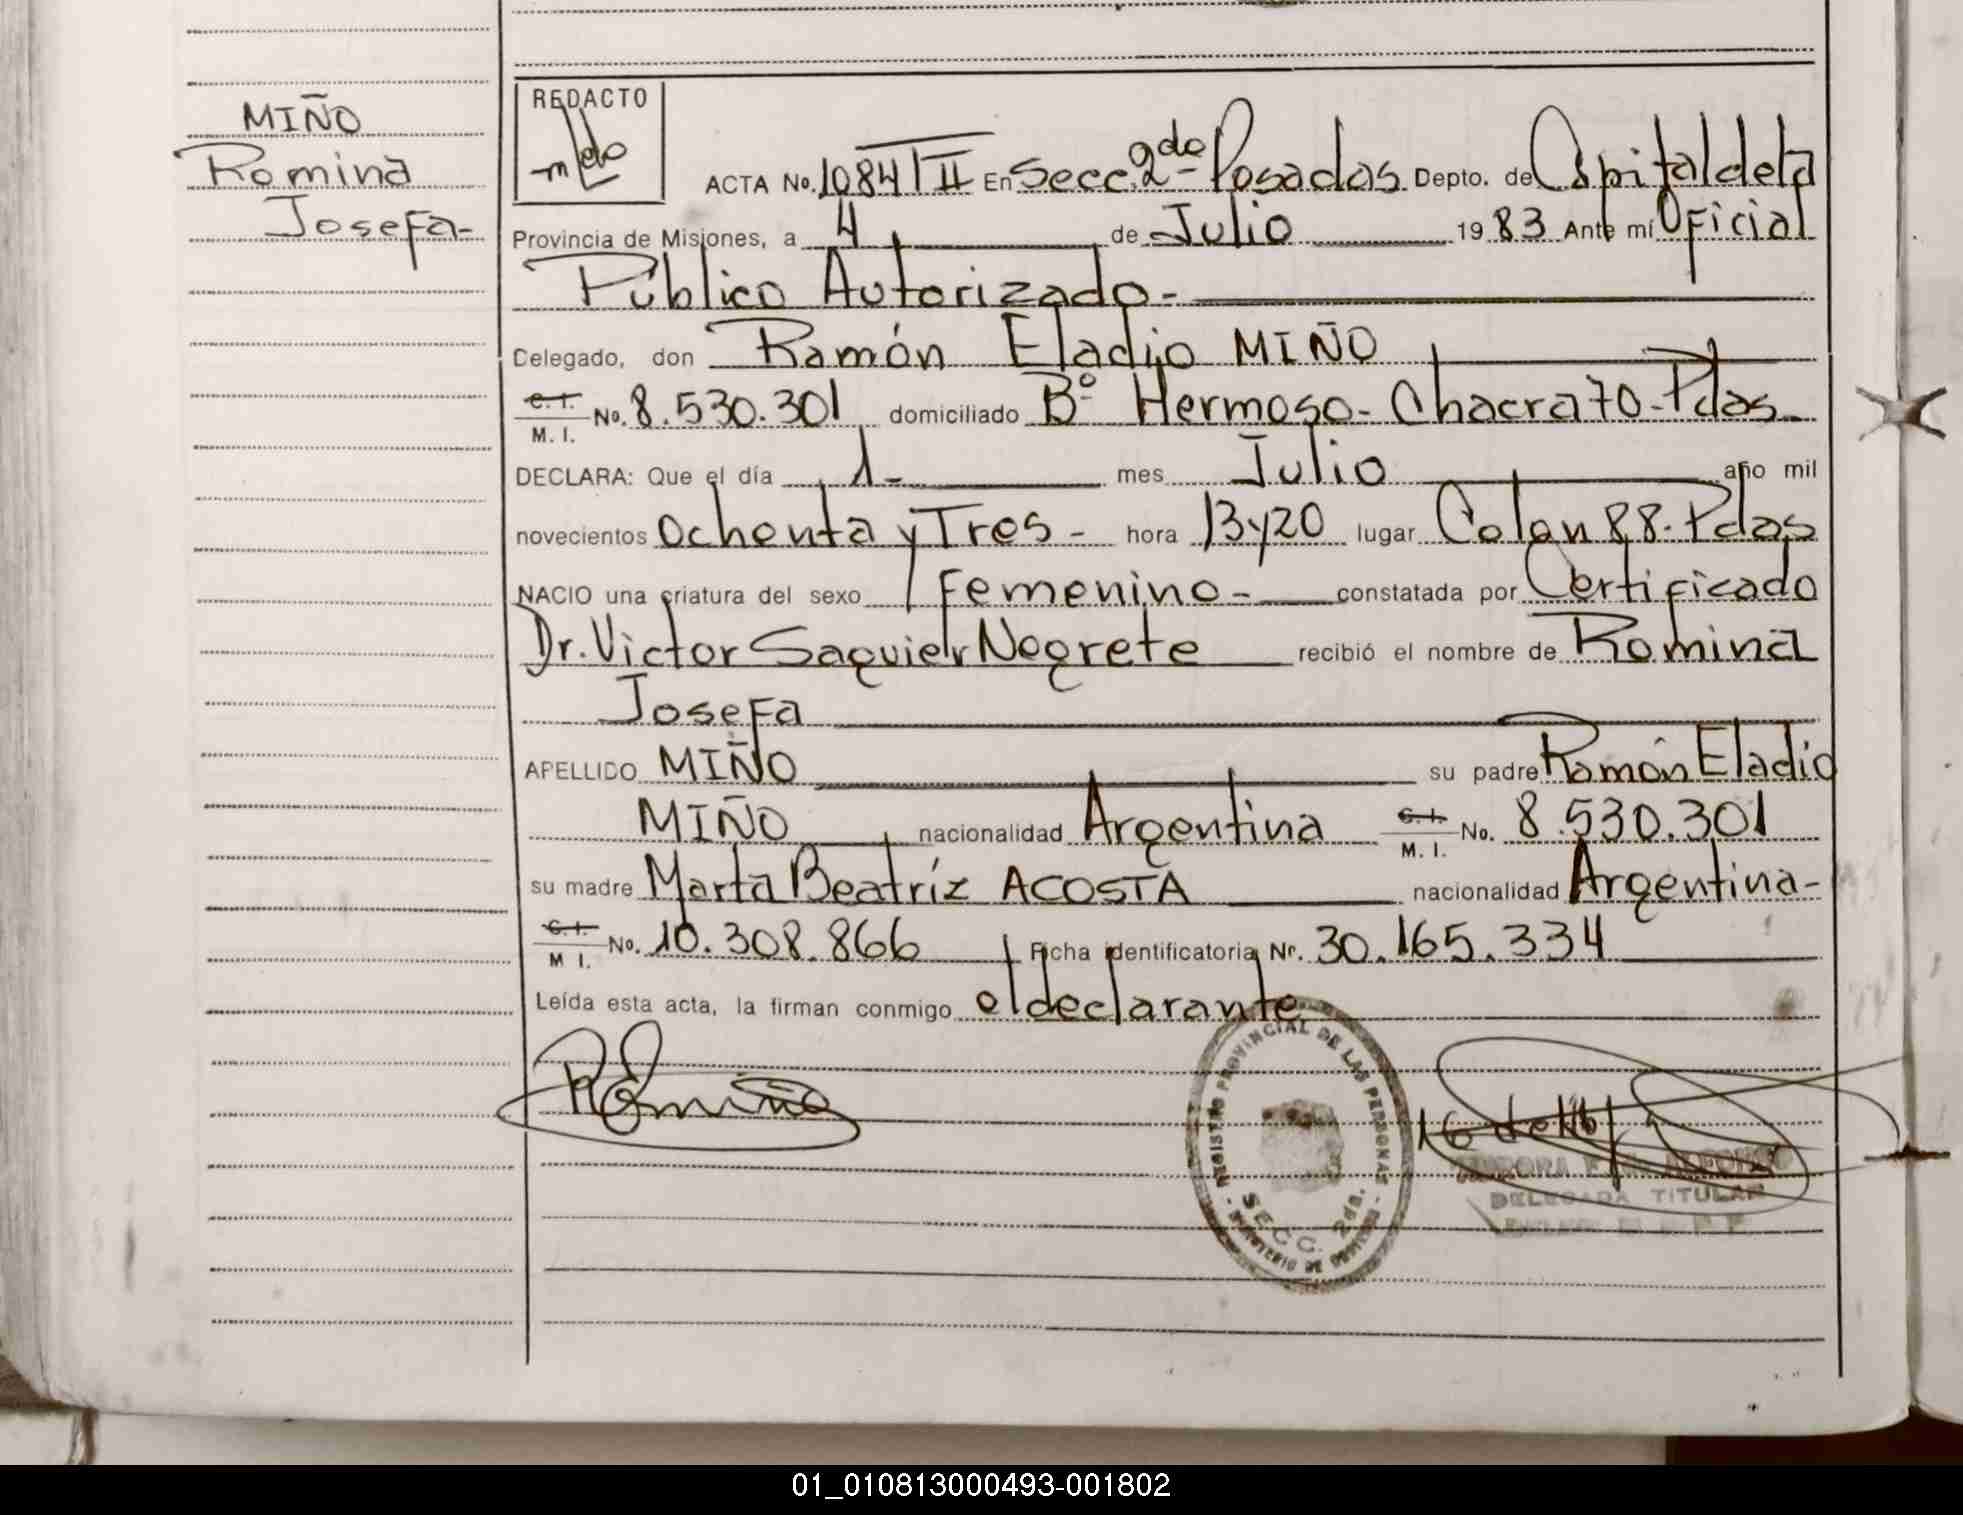 MIÑO
Romina
Josefa-
REDACTO
ACTA No. 1084 T II En Secc. 2da- Posadas Depto. de Capital de la
Provincia de Misiones, a 4 de Julio 1983 Ante mí Oficial
Público Autorizado-
Delegado, don Ramón Eladio MIÑO
C. I. M. I. No. 8.530.301 domiciliado Bº Hermoso- Chacra 70- Pdas-
DECLARA: Que el día 1- mes Julio año mil
novecientos Ochenta y Tres- hora 13y20 lugar Colon 88. Pdas
NACIO una criatura del sexo Femenino- constatada por Certificado
Dr. Victor Saquier Negrete recibió el nombre de Romina
Josefa
APELLIDO MIÑO su padre Ramón Eladio
MIÑO nacionalidad Argentina C. I. M. I. No. 8.530.301
su madre Marta Beatríz ACOSTA nacionalidad Argentina-
C. I. M I. No. 10.308.866 Ficha identificatoria Nr. 30.165.334
Leída esta acta, la firman conmigo el declarante
REGISTRO PROVINCIAL DE LAS PERSONAS
SECC. 2da.
DELEGADA TITULAR
01_010813000493-001802